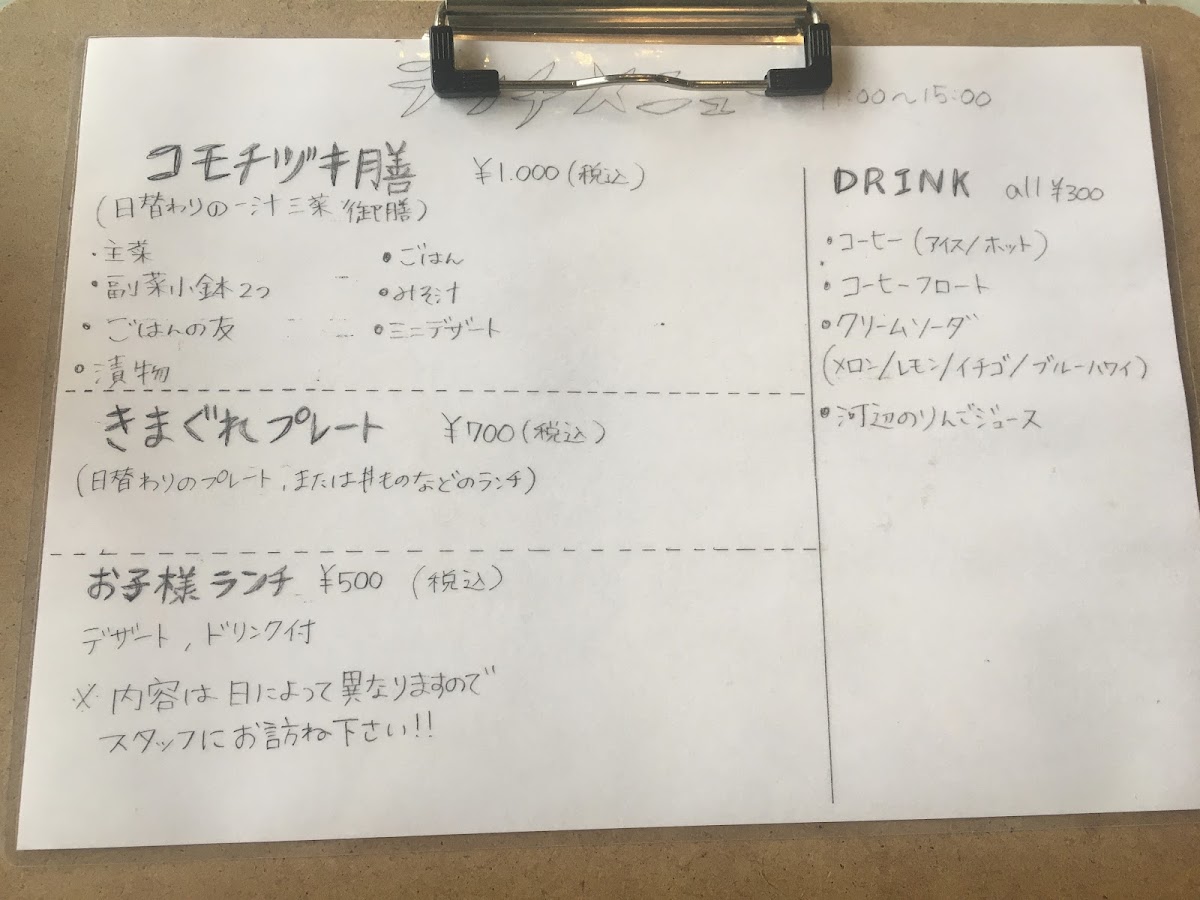 ランチメニュー 11:00～15:00
コモチヅキ膳 ¥1.000(税込)
(日替わりの一汁三菜 御膳)
・主菜
・副菜小鉢2つ
・ごはんの友
・漬物
・ごはん
・みそ汁
・ミニデザート
きまぐれプレート ¥700(税込)
(日替わりのプレート,または丼ものなどのランチ)
お子様ランチ ¥500 (税込)
デザート,ドリンク付
※ 内容は日によって異なりますので
スタッフにお訪ね下さい!!
DRINK all ¥300
・コーヒー(アイス/ホット)
・コーヒーフロート
・クリームソーダ
(メロン/レモン/イチゴ/ブルーハワイ)
・河辺のりんごジュース